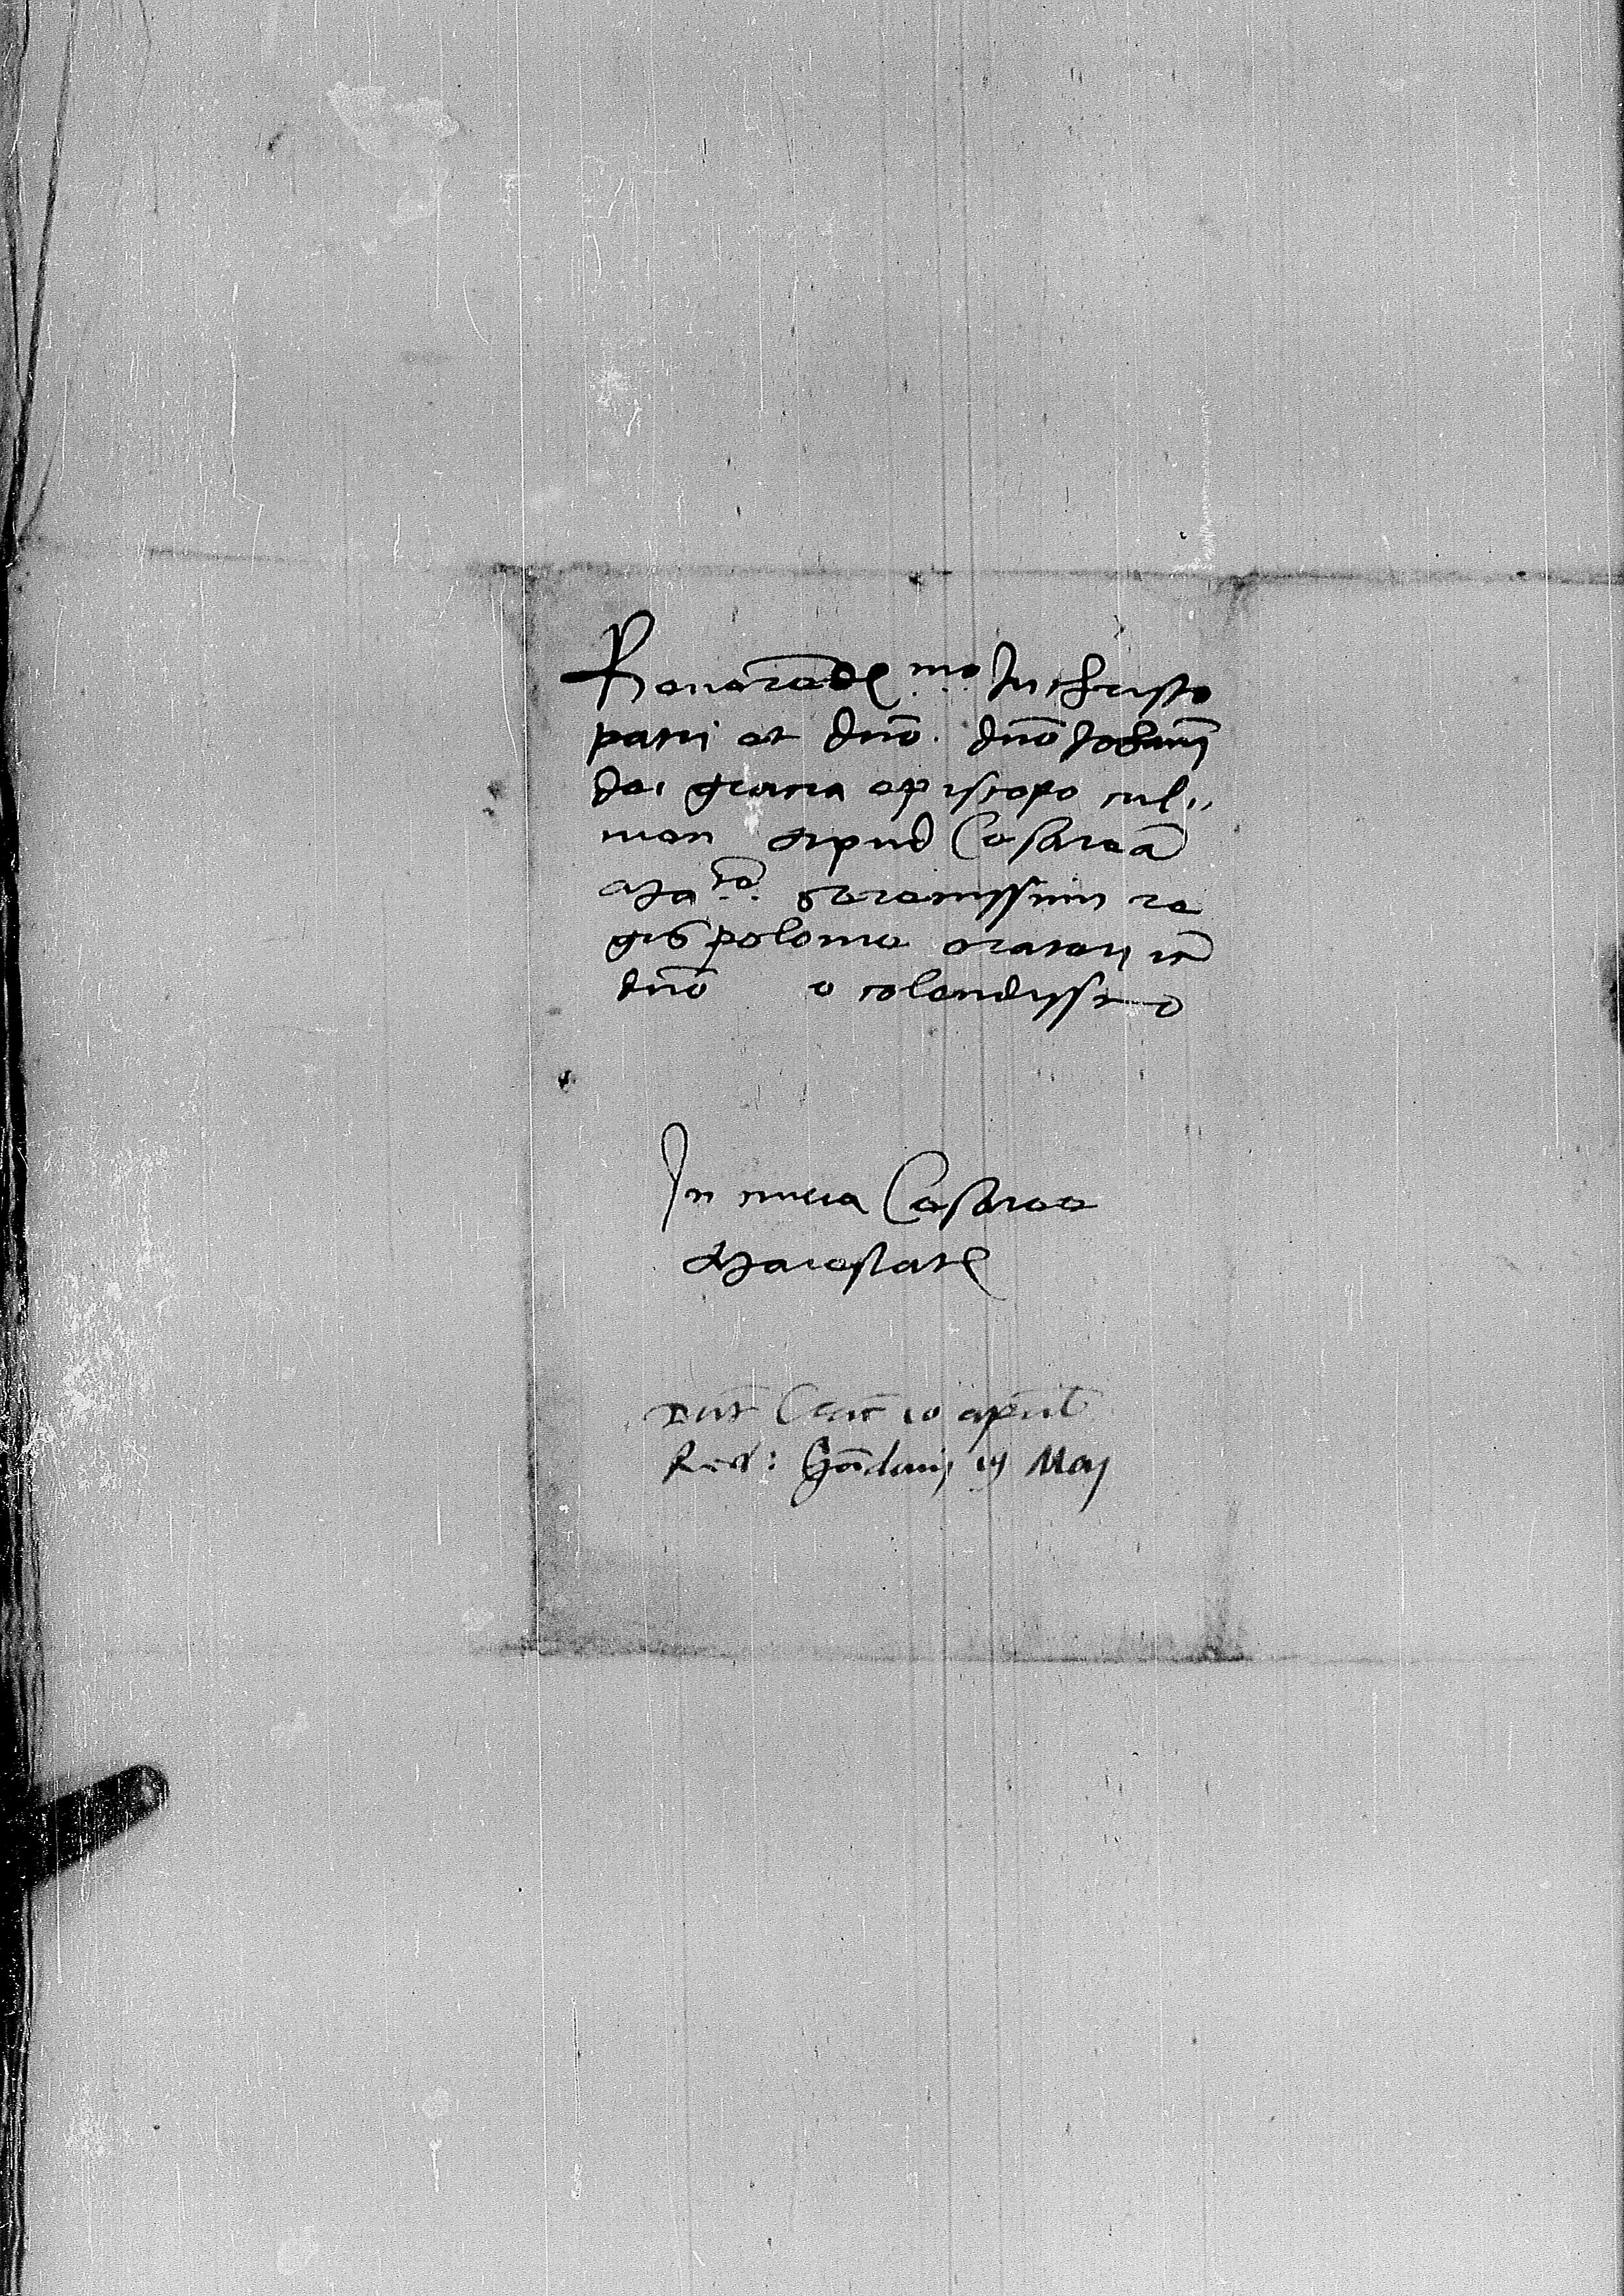 Reuerendissimo In christo
patri et dno. dno Johanni
dei gracia episcopo cul,,
men apud Cesareā
Matē. serenissimi re
gis polonie oratori et
dno o colendissimo
In curia Cesaree
Maiestatis
Dat 10 april
Red: Gandavi 19 May